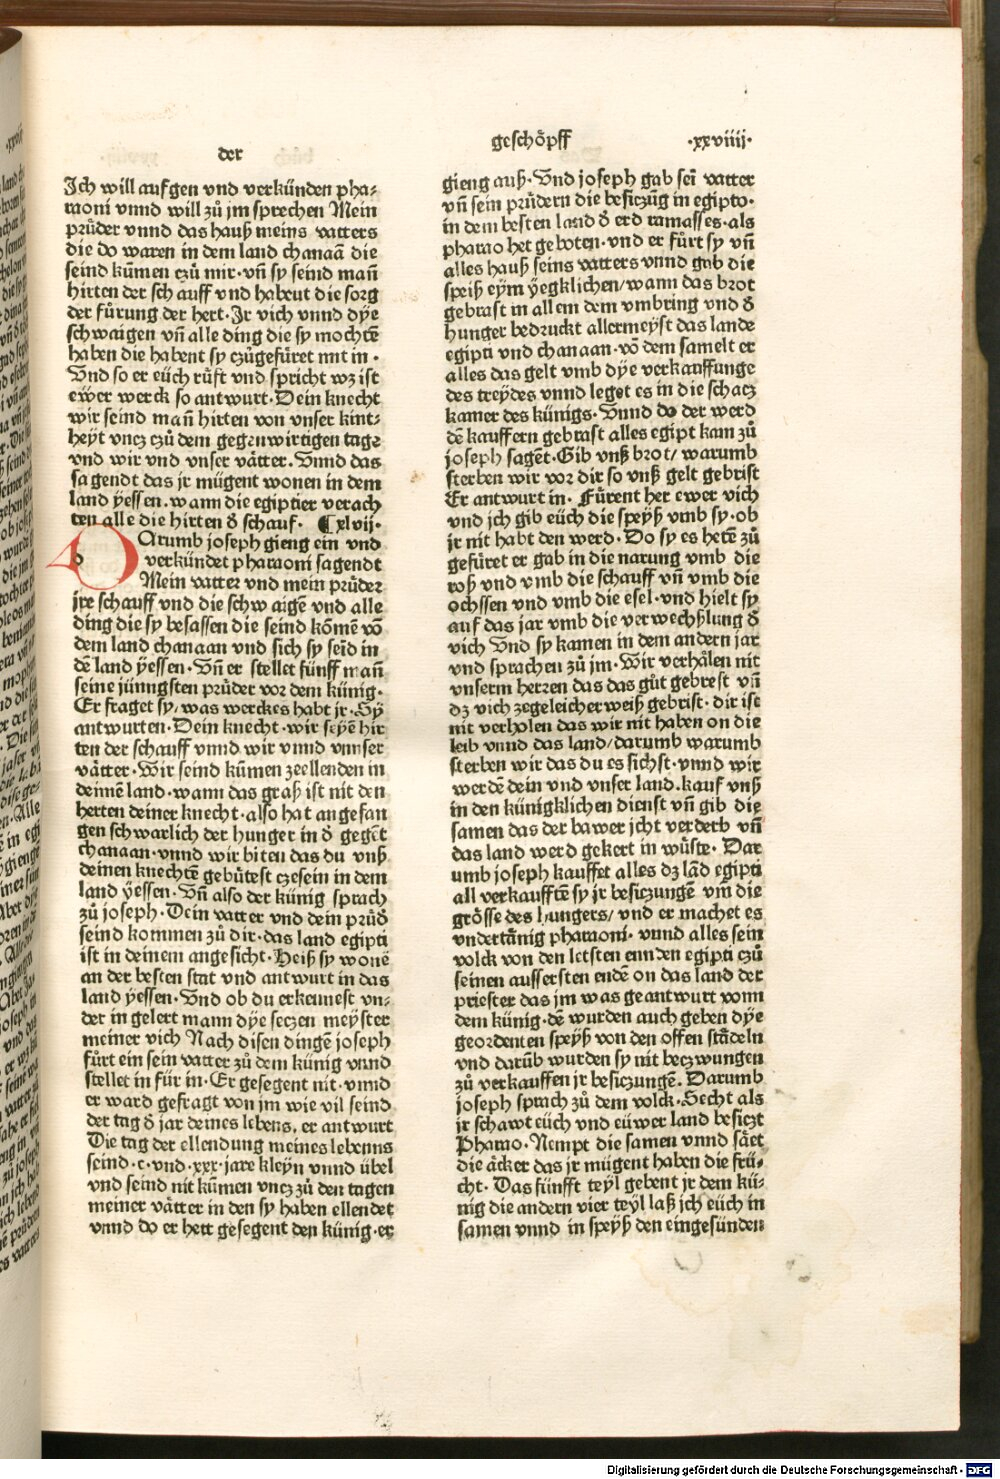 der
geschoͤpff
·xxviiij·
Ich will aufgen vnd verkünden pha⸗
raoni vnnd will zuͦ jm sprechen Mein
pruͤder vnnd das hauß meins vatters
die do waren in dem land chanaā die
seind kūmen czuͦ mir·vn̄ sy seind man̄
hirten der schauff vnd habent die sorg
der fuͤrung der hert·Ir vich vnnd dye
schwaigen vn̄ alle ding die sy mochtē
haben die habent sy czuͦgefuͤret mit in·
Vnd so er euͤch ruͤfft vnd spricht wz ist
ewer werck so antwurt·Dein knecht
wir seind man̄ hirten von vnser kint⸗
heyt vncz czuͦ dem gegenwirtigen tage
vnd wir vnd vnser vaͤtter·Vnnd das
sagendt das jr muͤgent wonen in dem
land ÿessen·wann die egiptier verach
ten alle die hirten d̄ schauf· ¶xlvij·
DArumb joseph gieng ein vnd
verkündet pharaoni sagendt
Mein vatter vnd mein pruͤder
jre schauff vnd die schwaigē vnd alle
ding die sy besassen die seind kōmē vō
dem land chanaan vnd sich sy seīd in
dē land ÿessen·Vn̄ er stellet fünff man̄
seine jünngsten pruͤder vor dem künig·
Er fraget sy/was werckes habt jr·Sy
antwurten·Dein knecht·wir seyē hir
ten der schauff vnnd wir vnnd vnnser
vaͤtter·Wir seind kūmen zeellenden in
deinē land·wann das graß ist nit den
herten deiner knecht·also hat angefan
gen schwarlich der hunger in d̄ gegēt
chanaan·vnnd wir biten das du vnß
deinen knechtē gebütest czesein in dem
land ÿessen·Vn̄ also der künig sprach
zuͦ joseph·Dein vatter vnd dein pruͤd̄
seind kommen zuͦ dir·das land egipti
ist in deinem angesicht·Heiß sy wonē
an der besten stat vnd antwurt in das
land ÿessen·Vnd ob du erkennest vn⸗
der in gelert mann dye seczen meyster
meiner vich Nach disen dingē joseph
fuͤrt ein sein vatter zuͦ dem künig vnnd
stellet in für in·Er gesegent nit·vnnd
er ward gefragt von jm wie vil seind
der tag d̄ jar deines lebens, er antwurt
Die tag der ellendung meines lebenns
seind·c·vnd·xxx·jare kleyn vnnd übel
vnd seind nit kūmen vncz zuͦ den tagen
meiner vaͤtter in den sy haben ellendet
vnnd do er hett gesegent den künig·er
gieng auß·Vnd joseph gab sei vatter
vn̄ sein pruͤdern die besiczūg in egipto·
in dem besten land d̄ erd ramasses·als
pharao het geboten·vnd er fuͤrt sy vn̄
alles hauß seins vatters vnnd gab die
speiß eym yegklichen/wann das brot
gebrast in allem dem vmbring vnd d̄
hunger bedruckt allermeyst das lande
egipti vnd chanaan·vō dem samelt er
alles das gelt vmb dye verkauffunge
des treydes vnnd leget es in die schacz
kamer des künigs·Vnnd do der werd
dē kauffern gebrast alles egipt kam zuͦ
joseph sagēt·Gib vnß brot/warumb
sterben wir vor dir so vnß gelt gebrist
Er antwurt in·Fuͤrent her ewer vich
vnd jch gib euͤch die speyß vmb sy·ob
jr nit habt den werd·Do sy es hetē zuͦ
gefuͤret er gab in die narung vmb die
roß vnd vmb die schauff vn̄ vmb die
ochssen vnd vmb die esel·vnd hielt sy
auf das jar vmb die verwechßlung d̄
vich Vnd sy kamen in dem andern jar
vnd sprachen zuͦ jm·Wir verhaͤlen nit
vnserm herren das das guͦt gebrest vn̄
dz vich zegeleicherweiß gebrist·dir ist
nit verholen das wir nit haben on die
leib vnnd das land/darumb warumb
sterben wir das du es sichst·vnnd wir
werdē dein vnd vnser land·kauf vnß
in den künigklichen dienst vn̄ gib die
samen das der bawer jcht verderb vn̄
das land werd gekert in wuͤste·Dar
umb joseph kauffet alles dz lād egipti
all verkaufftē sy jr besiczungē vm die
groͤsse des hungers/vnd er machet es
vndertaͤnig pharaoni·vnnd alles sein
volck von den letsten ennden egipti czuͦ
seinen aussersten endē on das land der
priester das jm was geantwurt vonn
dem künig·dē wurden auch geben dye
geordenten speyß von den offen staͤdeln
vnd darūb wurden sy nit beczwungen
zuͦ verkauffen jr besiczungē·Darumb
joseph sprach zuͦ dem volck·Secht als
jr schawt euͤch vnd euͤwer land besiczt
Pharao·Nempt die samen vnnd saͤet
die aͤcker das jr muͤgent haben die frü⸗
cht·Das fünfft teyl gebent jr dem kü⸗
nig die andern vier teyl laß jch euͤch in
samen vnnd in speyß den eingesünden
Digitalisierung gefördert durch die Deutsche Forschungsgemeinschaft - DFG